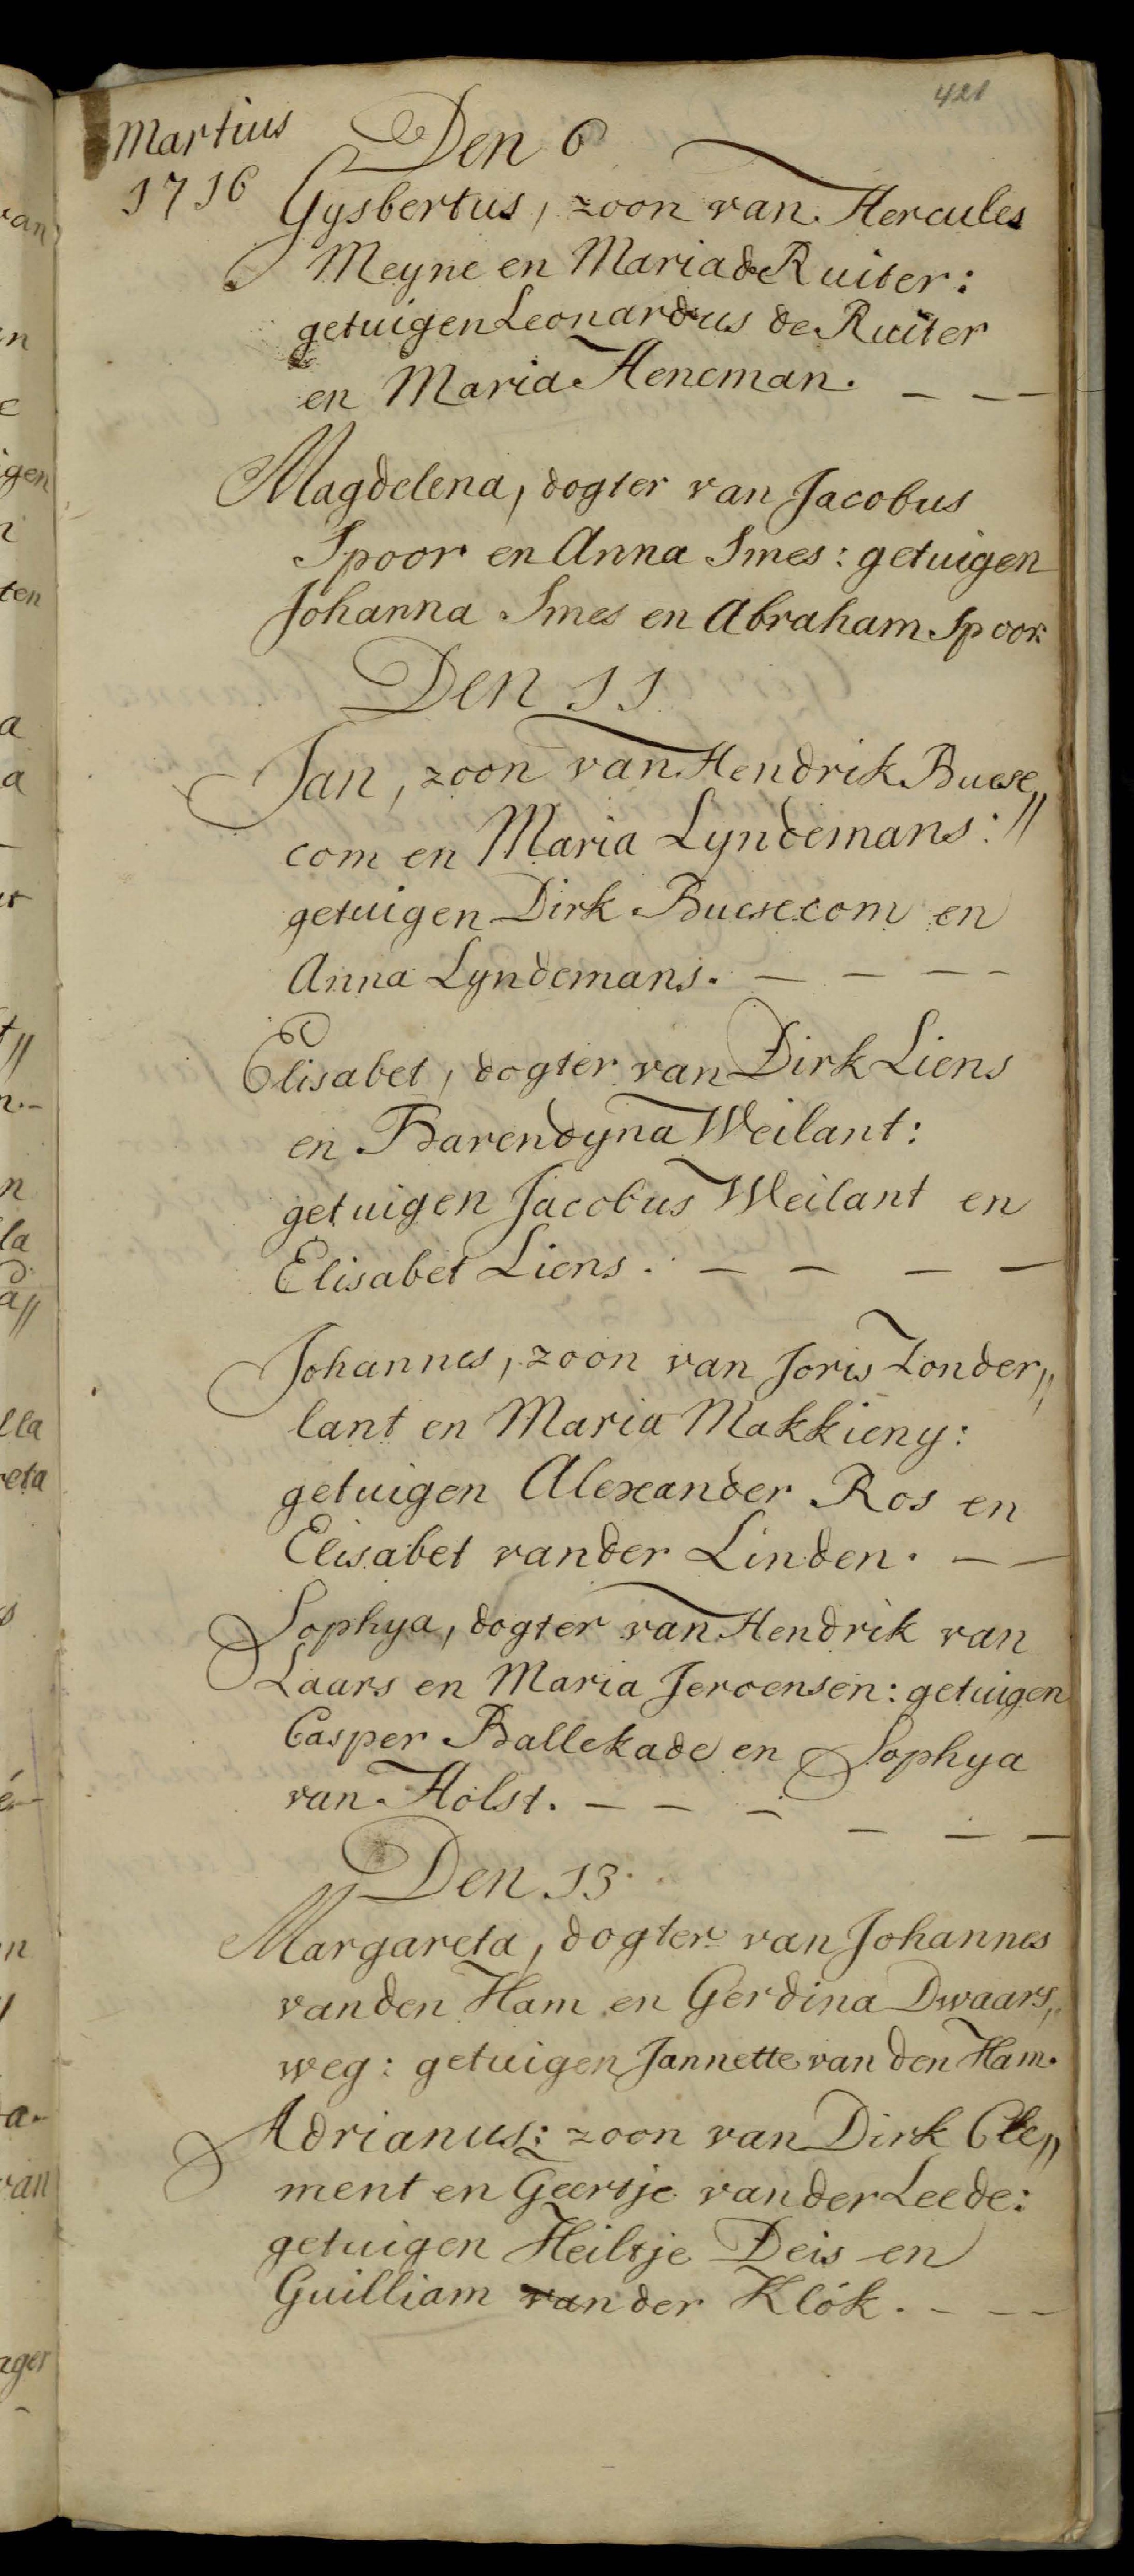 421
Martius
1716
Den 6
Gysbertus, zoon van Hercules
Meyne en Maria de Ruiter:
getuigen Leonardus de Ruiter
en Maria Heneman. - - -
Magdelena, dogter van Jacobus
Spoor en Anna Smes: getuigen
Johanna Smes en Abraham Spoor
Den 11
Jan, zoon van Hendrik Buese„
com en Maria Lyndemans:
getuigen Dirk Buesecom en
Anna Lyndemans. - - - -
Elisabet, dogter van Dirk Liens
en Barendyna Weilant:
getuigen Jacobus Weilant en
Elisabet Liens. - - - -
Johannes, zoon van Joris Zonder„
lant en Maria Makkieny:
getuigen Alexander Ros en
Elisabet vander Linden. - -
Sophya, dogter van Hendrik van
Laars en Maria Jeroensen: getuigen
Casper Ballekade en Sophya
van Holst. - - - - - -
Den 13.
Margareta, dogter van Johannes
vanden Ham en Gerdina Dwaars„
weg: getuigen Jannette van den Ham.
Adrianus: zoon van Dirk Cle„
ment en Geertje vander Leede:
getuigen Heiltje Deis en
Guilliam vander Klók. - - -